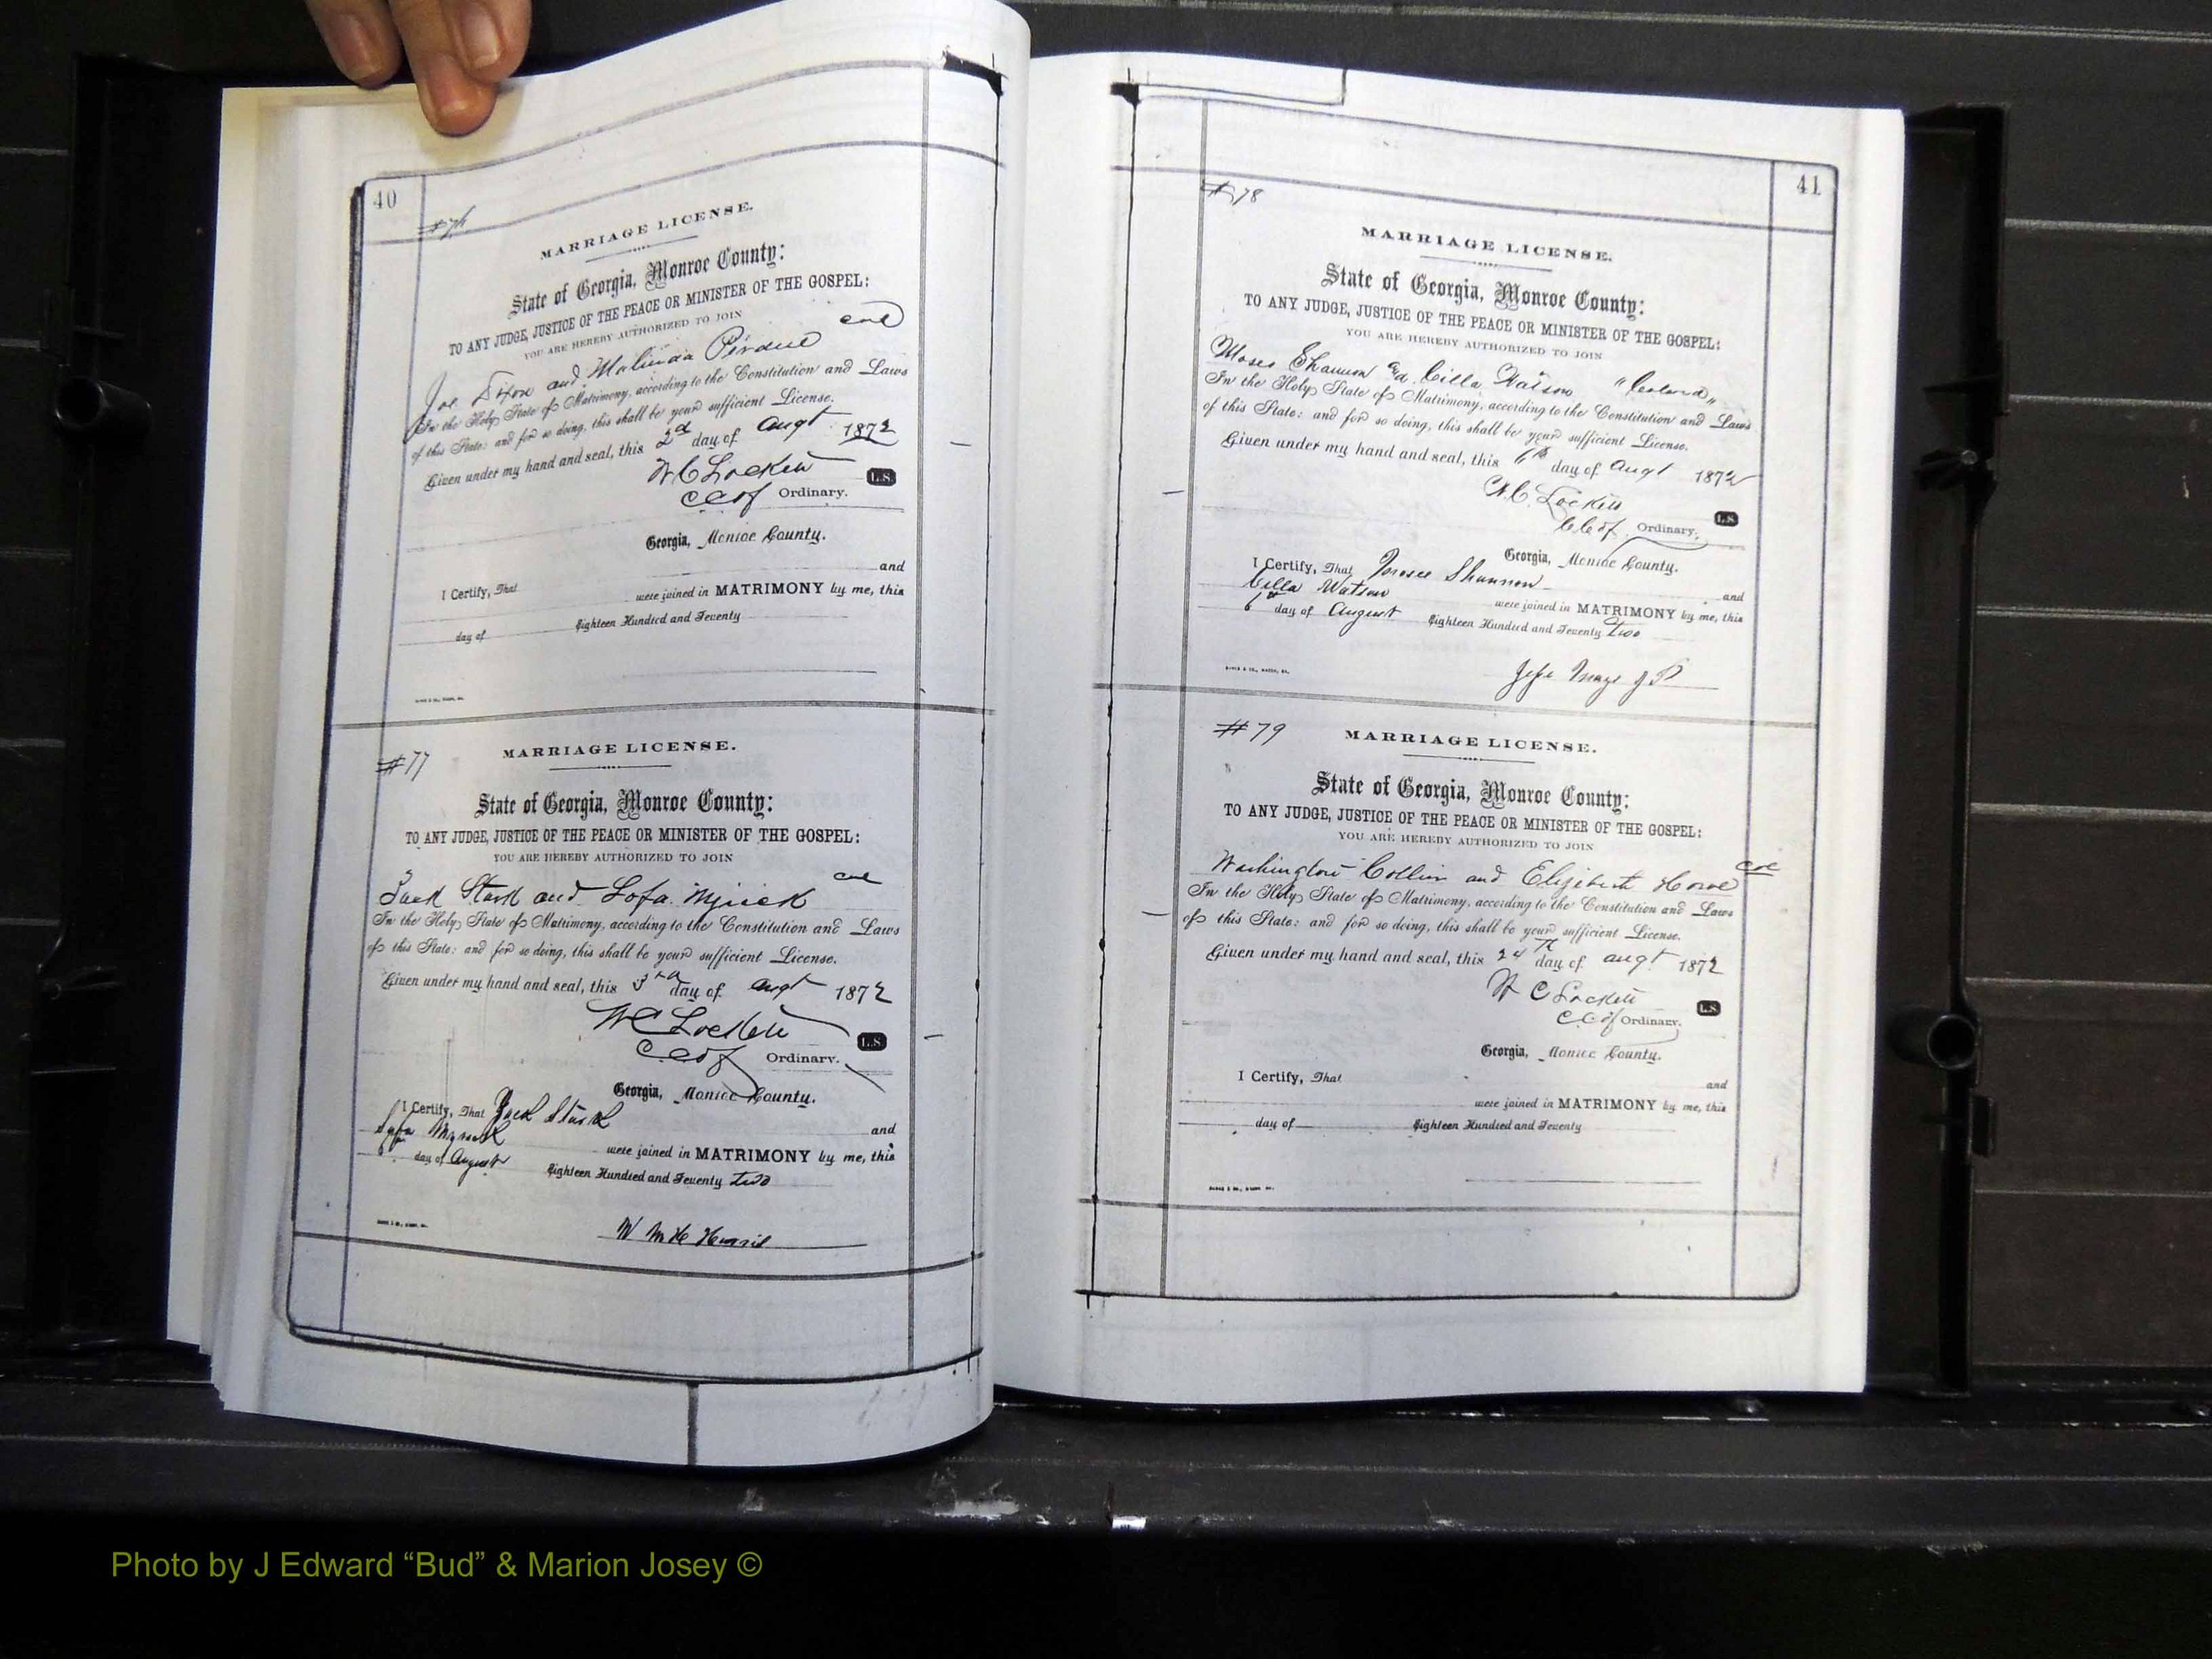 40
MARRIAGE LICENSE.
State of Georgia, Monroe County:
TO ANY JUDGE, JUSTICE OF THE PEACE OR MINISTER OF THE GOSPEL:
YOU ARE HEREBY AUTHORIZED TO JOIN
Joe Dixon and Malinda Perdue col
In the Holy State of Matrimony, according to the Constitution and Laws
of this State: and for so doing, this shall be your sufficient License.
Given under my hand and seal, this 2d day of Augt 1872
W C Lockett L.S.
Ordinary.
Georgia, Monroe County.
I Certify, That and
were joined in MATRIMONY by me, this
day of Eighteen Hundred and Seventy
#77
MARRIAGE LICENSE.
State of Georgia, Monroe County:
TO ANY JUDGE, JUSTICE OF THE PEACE OR MINISTER OF THE GOSPEL:
YOU ARE HEREBY AUTHORIZED TO JOIN
Stark and col
In the Holy State of Matrimony, according to the Constitution and Laws
of this State: and for so doing, this shall be your sufficient License.
Given under my hand and seal, this 3rd day of Augt 1872
W C Lockett L.S.
Ordinary.
Georgia, Monroe County.
I Certify, That Stark and
were joined in MATRIMONY by me, this
6 day of August Eighteen Hundred and Seventy two
W Harris
41
#78
MARRIAGE LICENSE.
State of Georgia, Monroe County:
TO ANY JUDGE, JUSTICE OF THE PEACE OR MINISTER OF THE GOSPEL:
YOU ARE HEREBY AUTHORIZED TO JOIN
Moses Shannon Cilla Watson "Colored"
In the Holy State of Matrimony, according to the Constitution and Laws
of this State: and for so doing, this shall be your sufficient License.
Given under my hand and seal, this day of Augt 1872
W.C. Lockett L.S.
Ordinary.
Georgia, Monroe County.
I Certify, That Moses Shannon and
Cilla Watson were joined in MATRIMONY by me, this
day of August Eighteen Hundred and Seventy two
#79
MARRIAGE LICENSE.
State of Georgia, Monroe County:
TO ANY JUDGE, JUSTICE OF THE PEACE OR MINISTER OF THE GOSPEL:
YOU ARE HEREBY AUTHORIZED TO JOIN
Washington Collier and Elizabeth col
In the Holy State of Matrimony, according to the Constitution and Laws
of this State: and for so doing, this shall be your sufficient License.
Given under my hand and seal, this 24th day of Augt 1872
W C Lockett L.S.
Ordinary.
Georgia, Monroe County.
I Certify, That and
were joined in MATRIMONY by me, this
day of Eighteen Hundred and Seventy
Photo by J Edward “Bud” & Marion Josey ©